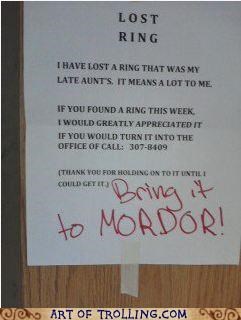 LOST
RING
I HAVE LOST A RING THAT WAS MY
LATE AUNT'S. IT MEANS A LOT TO ME.
IF YOU FOUND A RING THIS WEEK,
I WOULD GREATLY APPRECIATED IT
IF YOU WOULD TURN IT INTO THE
OFFICE OF CALL: 307-8409
(THANK YOU FOR HOLDING ON TO IT UNTIL I
COULD GET IT.) Bring it
to MORDOR!
ART OF TROLLING.COM